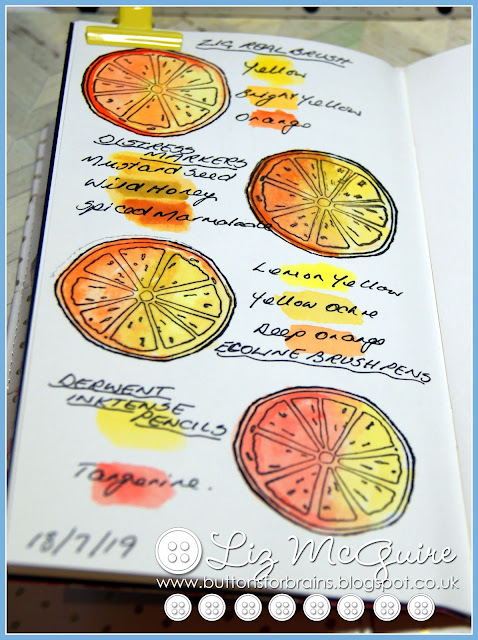 ZIG REAL BRUSH
Yellow
Bright Yellow
Orange
DISTRESS
MARKERS
Mustard Seed
Wild Honey
Spiced Marmalade
Lemon Yellow
Yellow Ochre
Deep Orange
ECOLINE BRUSH PENS
DERWENT
INKTENSE
PENCILS
Tangerine.
18/7/19
Liz McGuire
www.buttonsforbrains.blogspot.co.uk